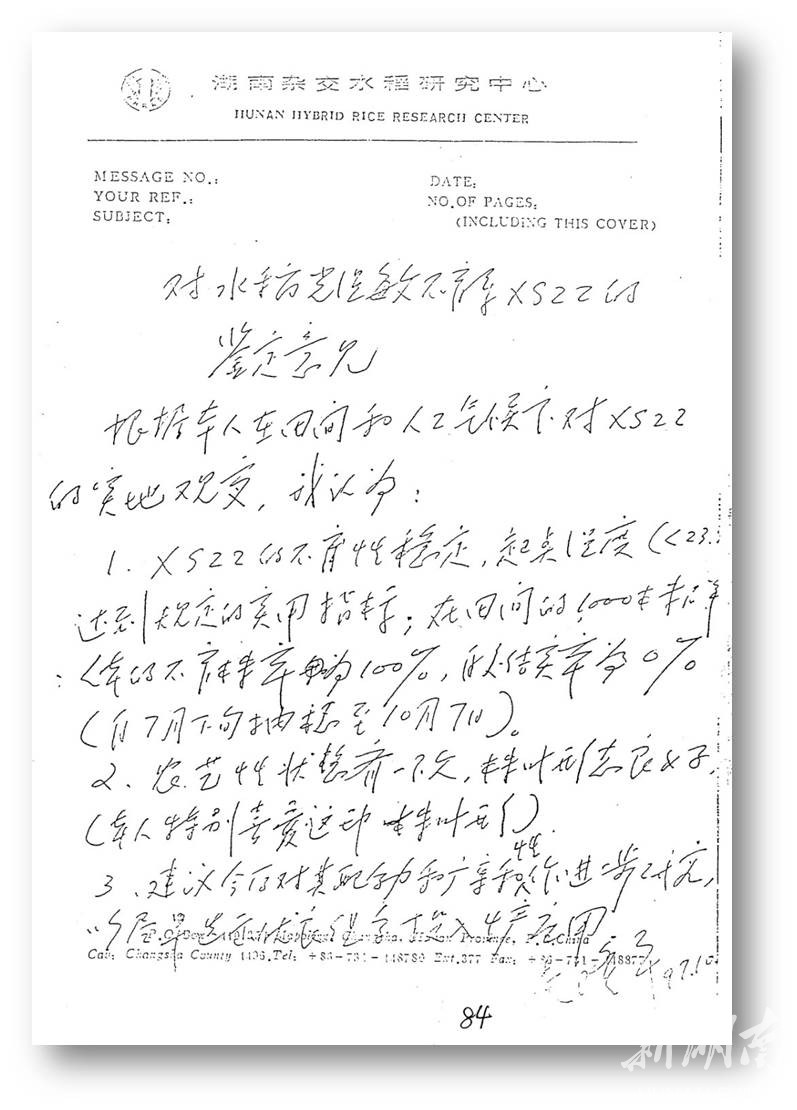 湖南杂交水稻研究中心
HUNAN HYBRID RICE RESEARCH CENTER
MESSAGE NO.:
YOUR REF.:
SUBJECT:
DATE:
NO.OF PAGES:
(INCLUDING THIS COVER)
对水稻光温敏不育系XS22的
鉴定意见
根据本人在田间和人工气候下对XS22
的实地观察,我认为:
1、XS22的不育性稳定,起点温度(<23.
达到规定的实用指标;在田间的1,000株群
体的不育株率为100%,自交结实率为0%
(自7月下旬抽穗至10月7日)。
2、农艺性状整齐一致,株叶形态良好,
(本人特别喜爱这种株叶型)
3、建议今后对其配合力和广亲和性作进一步研究,
以尽早选定优良组合投入生产应用
Changsha, Hunan Province, P.R.China
Cab: Changsha County 1496.Tel: +86-731-148780 Ext.377 Fax: +86-731-14887
97.10
84
新湖南